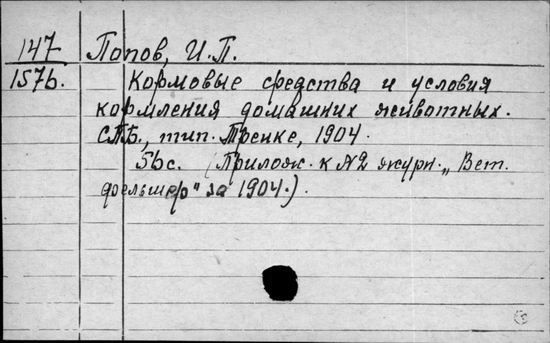 147
157b.
Попов, И.П.
Кормовые средства и условия
кормления домашних животных.
СПБ., тип. Тренке, 1904.
56с. (Прилож. к №2 журн. „Вет.
фельшер" за 1904.).